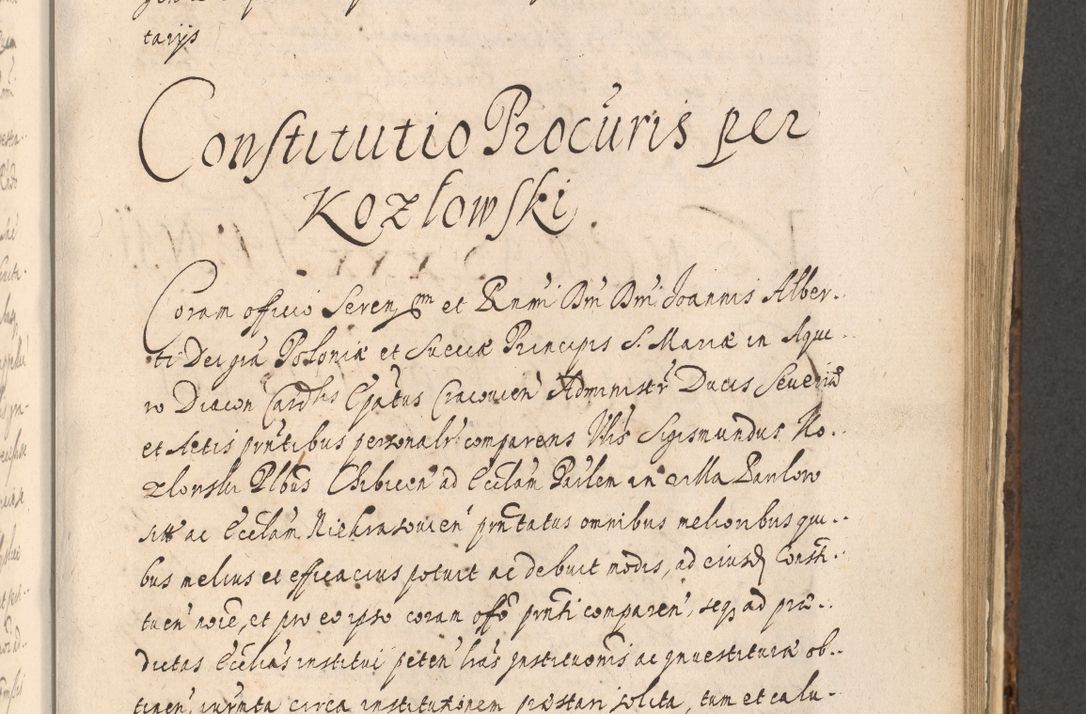 tarijs
Constitutio Procuris per
Kozłowski
Coram officio Seren~ssm et Rndmi Dni Dni Joannis Alber-
ti Dei gra Poloniæ et Sueciæ Principis S. Mariæ in Aqui-
ro Diacon Cardlis Epatus Cracovien Administr Ducis Severiæ
et Actis pntibus personalr comparens Mls Sigismundus Ko-
złowski Plbus ad Ecclam Parlem in villa Pawlow
sitt ac Ecclam pntatus omnibus melioribus qui-
bus melius et efficacius potuit ac debuit modis, ad eiusd Consti-
tuen noie, et pro eo ipso coram offo pnti comparen, seq ad præ-
dictas Ecclias institui peten lras institutionis ac investituræ ob-
tinen, iurmta circa institutionem præstari solita, tum et calu-